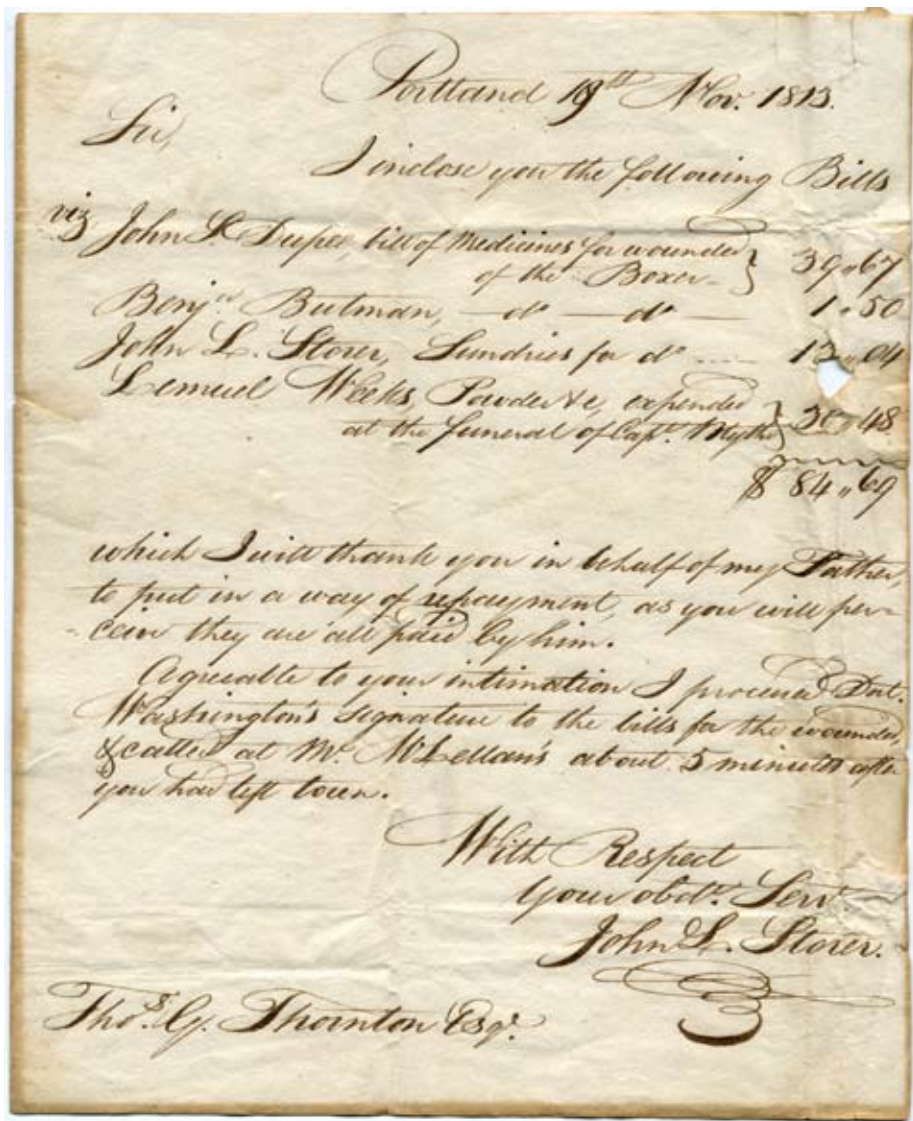 Portland 19th Nov. 1813.
Sir,
I inclose you the following Bills
viz John S. Dupee, bill of Medicines for wounded
of the Boxer 39..67
Benja. Butman, — do — do — 1..50
John L. Storer, Sundries for do .... 13..04
Lemuel Weeks, Powder &c, expended
at the funeral of Capt. Blythe 30..48
$ 84..69
which I will thank you in behalf of my Father,
to put in a way of repayment, as you will per-
ceive they are all paid by him.
Agreeable to your intimation I procured Doct.
Washington's signature to the bills for the wounded,
& called at Mr. McLellan's about 5 minutes after
you had left town.
With Respect
Your obdt. Servt.
John L. Storer.
Thos. G. Thornton Esqr.